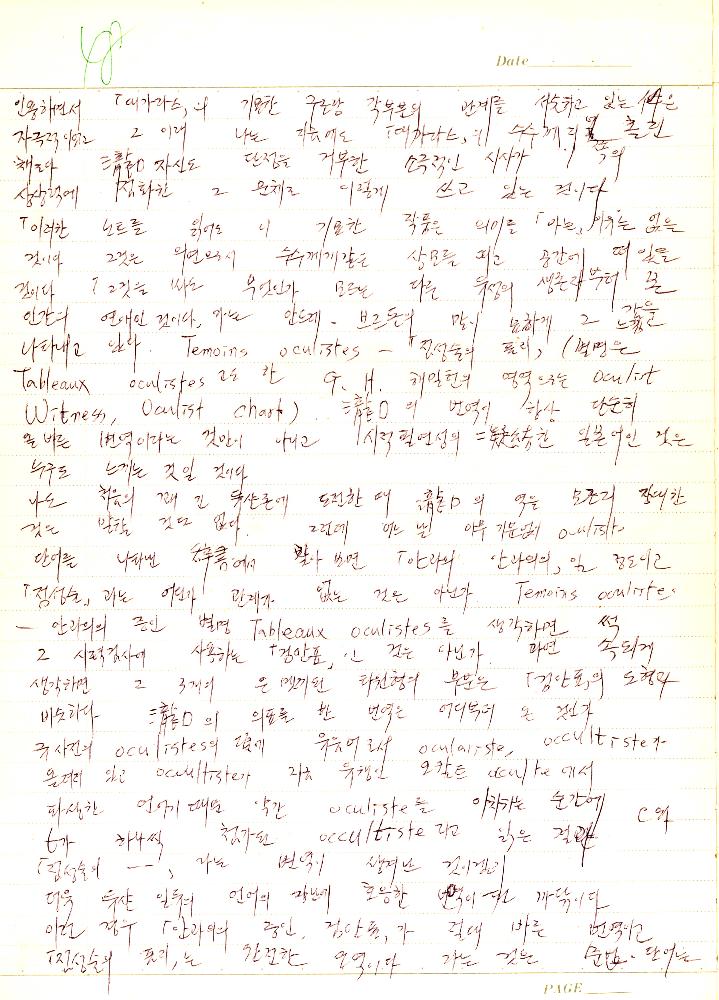 Date
인용하면서 「대가라스」의 기묘한 구근방 각부분의 관계를 서술하고 있는
자극적이고 그 이래 나는 지금에도 「대가라스」의 수수께끼에 홀린
채로다 瀧口 자신도 단정을 거부한 소극적인 시사가 쪽의
상상력에 점화한 그 은체로 이렇게 쓰고 있는 것이다
「이러한 노트를 읽어도 이 기묘한 작품은 의미를 「아는」 이유는 없을
것이다 그것은 의연으로서 수수께끼같은 상모를 띠고 공간에 떠 있을
것이다 「그것을 무엇인가 모르는 다른 혹성의 생존자부터 본
인간의 연애인 것이다」 라는 안드레·브르톤의 말이 묘하게 그 감을
나타내고 있다. Temoins oculistes — 「점성술의 표리」 (별명은
Tableaux oculistes 고도 한 G. H. 해밀턴의 영역으로는 Oculist
Witness, Oculist chart) 瀧口의 번역이 항상 단순히
올바른 번역이라는 것만이 아니고 시적 필연성의 일본어인 것은
누구도 느끼는 것일 것이다
나도 처음의 꽤 긴 뒤샹론에 도전한 때 瀧口의 역은 모조리 절대한
것은 말할 것도 없다. 그런데 어느 날 아무 기분없이 oculiste
단어를 나타낸 辭書에서 찾아 보면 「안과의 안과의의」일 정도이고
「점성술」과는 어떤가 관계가 없는 것은 아닌가 Temoins oculistes
— 안과의의 증인 별명 Tableaux oculistes를 생각하면 썩
그 시력검사에 사용하는 「검안표」인 것은 아닌가. 과연 속되게
생각하면 그 3개의 은멧끼된 타원형의 부분은 「검안표」의 도형과
비슷하다 瀧口의 의표를 한 번역은 어디부터 온 것인가
국사전의 oculistes의 곁에 유음어로서 oculariste, occultiste가
올려져 있고 occultiste가 지금 유행인 오칼트 occulte에서
파생한 언어기 때문에 약간 oculiste를 순간에 c와
t가 하나씩 첨가된 occultiste라고 읽은 결과
「점성술의 ——」라는 번역이 생겨난 것이겠지
더욱 뒤샹 일류의 언어의 장난에 호응한 번역이 된 까닭이다
이런 경우 「안과의의 증인, 검안표」가 절대 바른 번역이고
「점성술의 표리」는 간단한 오역이다 라는 것은 문법·단어는
PAGE